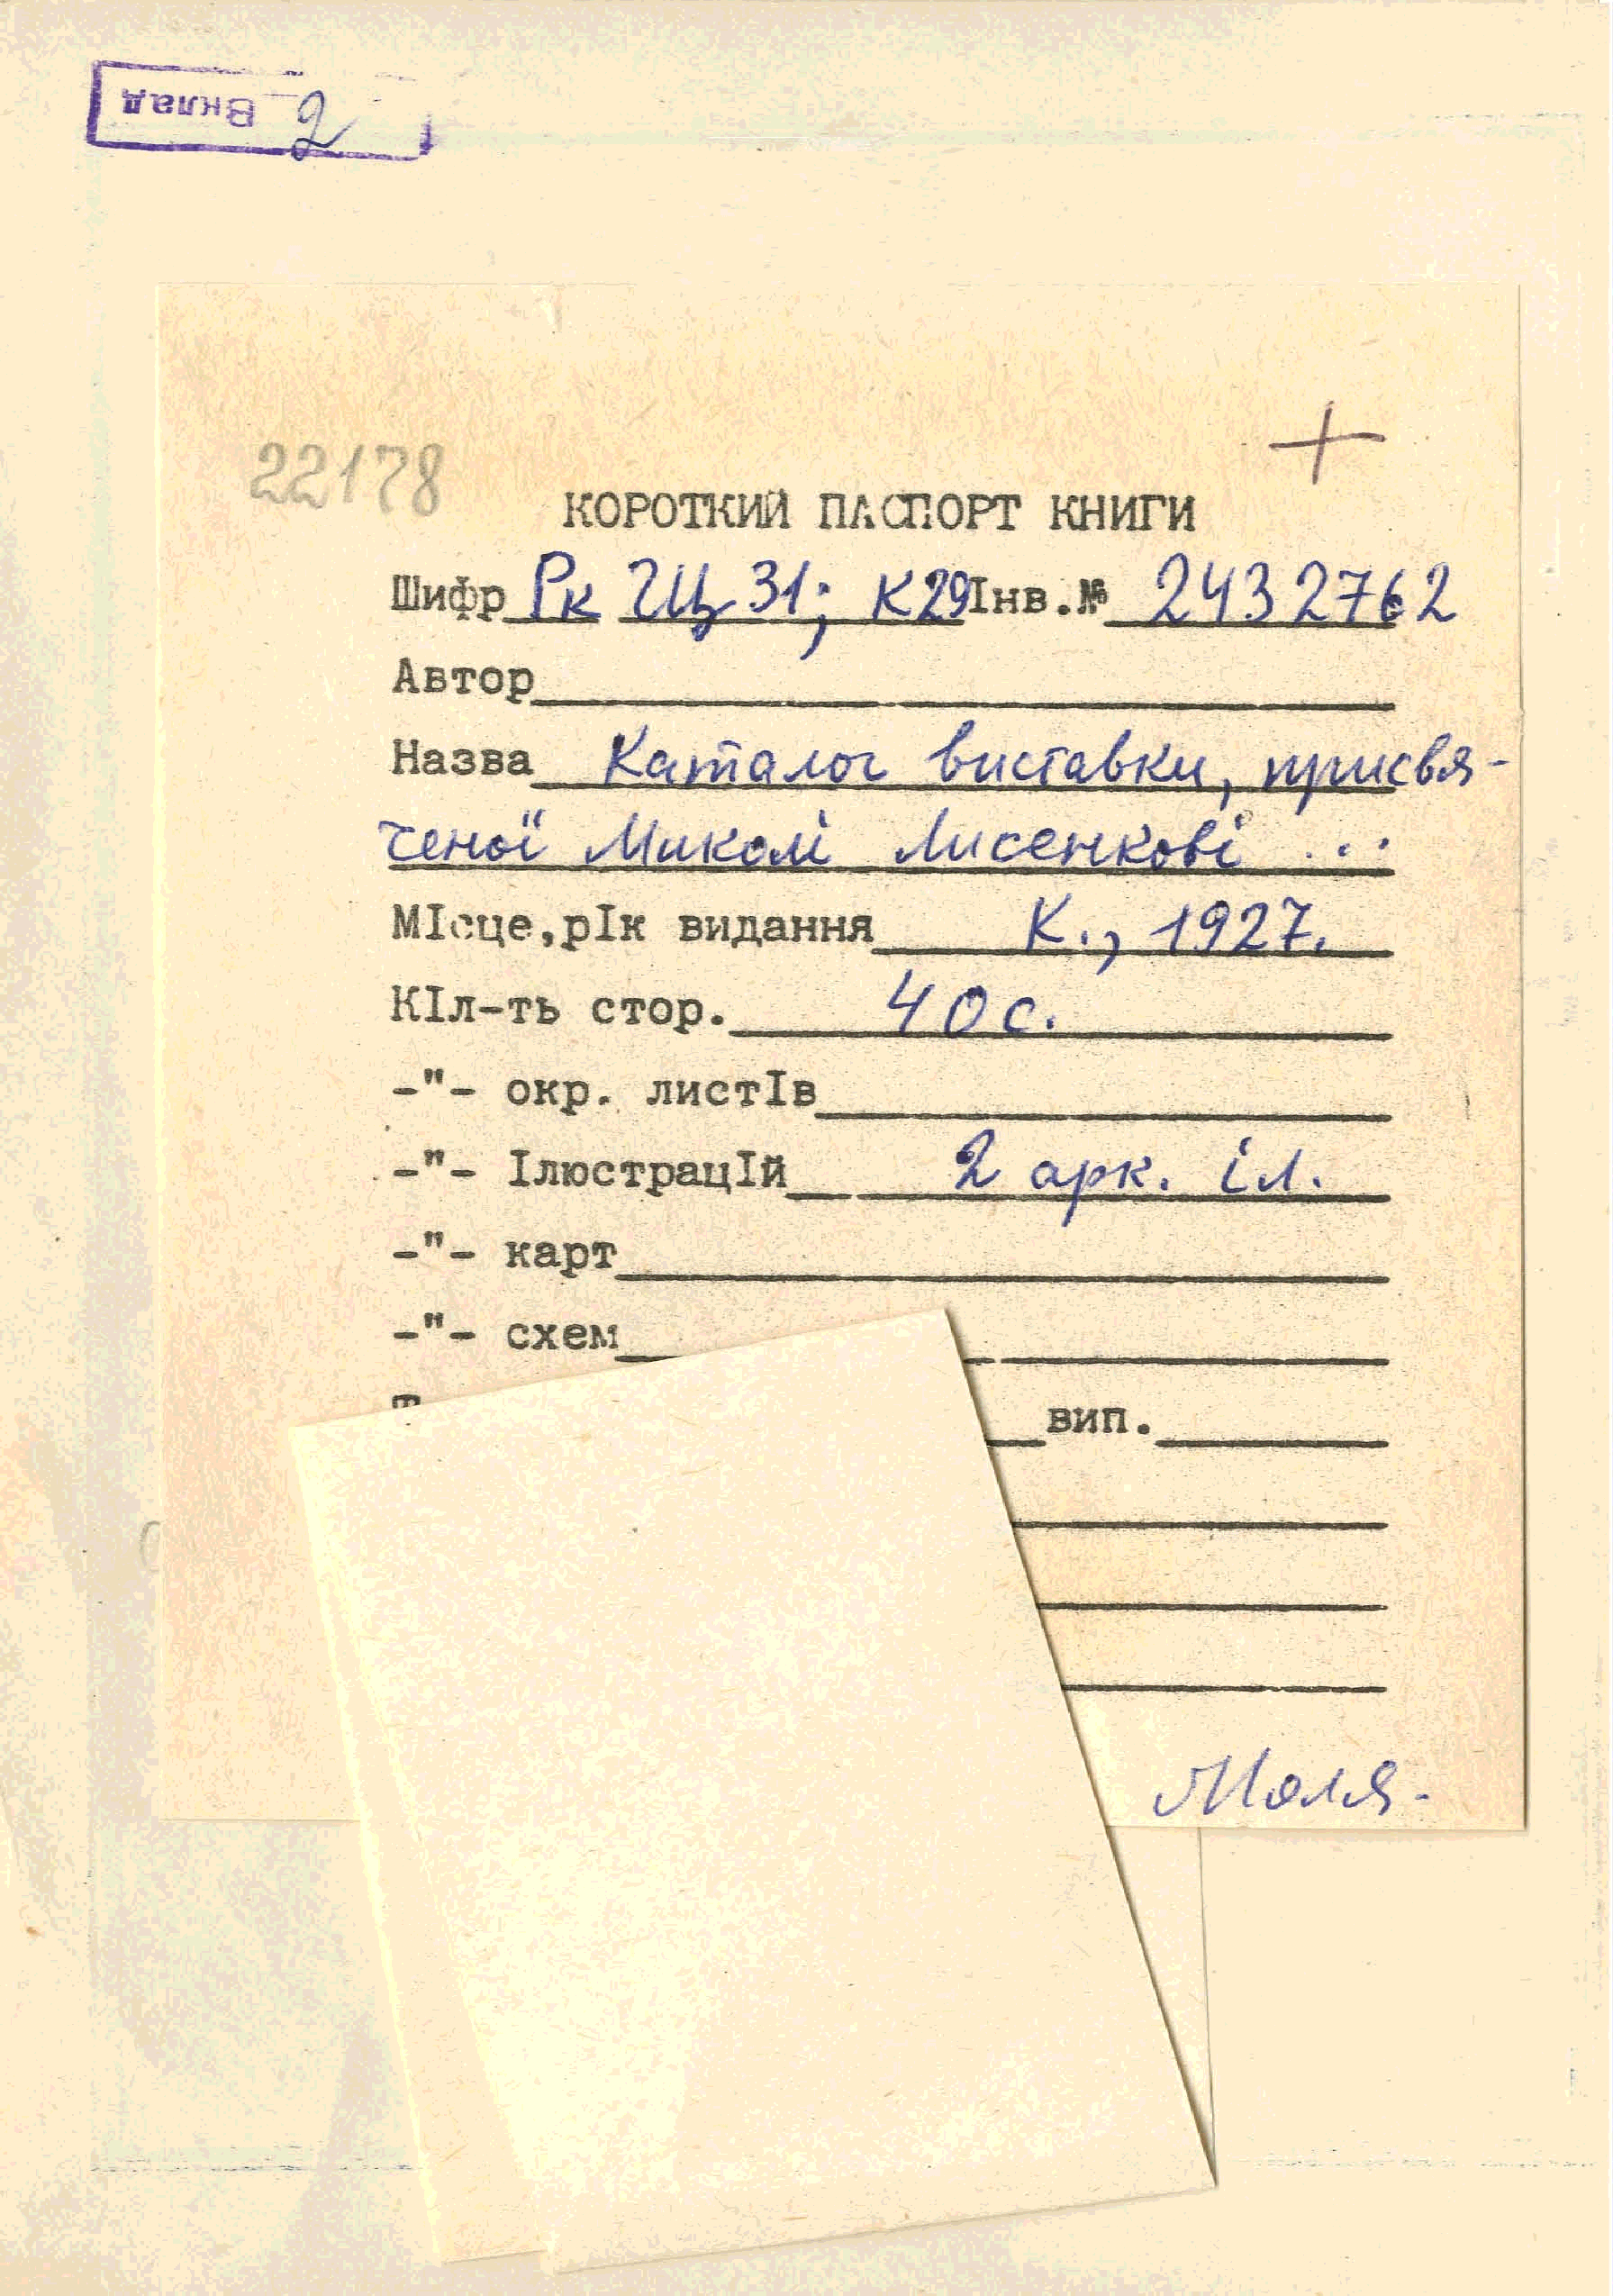 Вклад 2
22178
+
КОРОТКИЙ ПАСПОРТ КНИГИ
Шифр Рк ЧЦ 31; К29 Інв.№ 2432762
Автор
Назва Каталог виставки, присвя-
ченої Миколі Лисенкові ...
МІсце,рІк видання К., 1927.
КІл-ть стор. 40 с.
-"- окр. листІв
-"- ІлюстрацІй 2 арк. іл.
-"- карт
-"- схем
вип.
Моля.